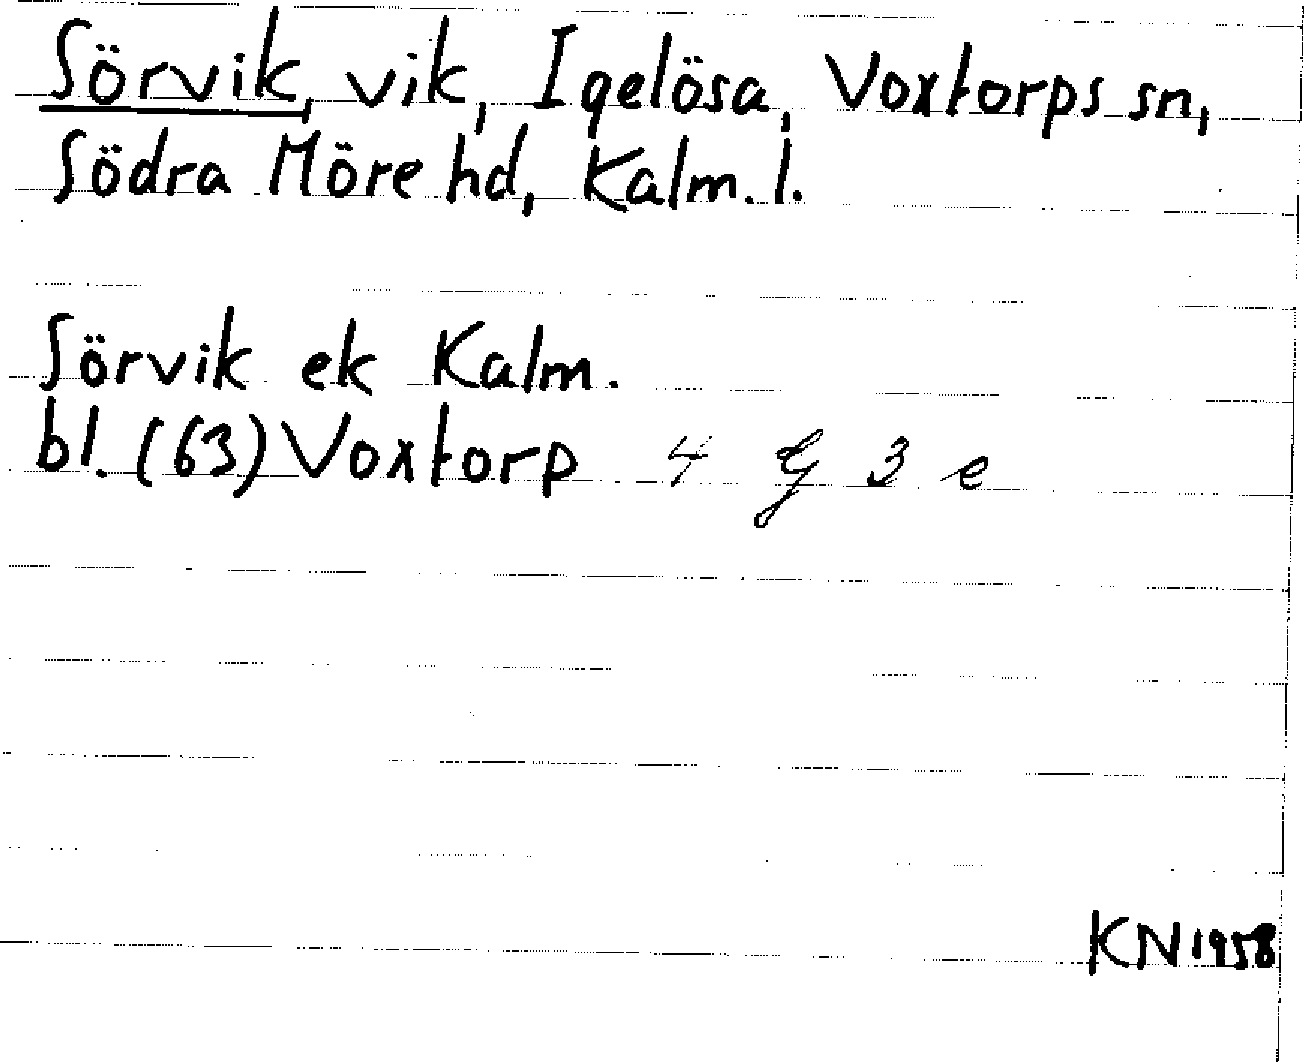 Sörvik, vik, Igelösa, Voxtorps sn,
Södra Möre hd, Kalm. l.
Sörvik ek Kalm.
bl. (63) Voxtorp 4 G 3 e
KN 1958